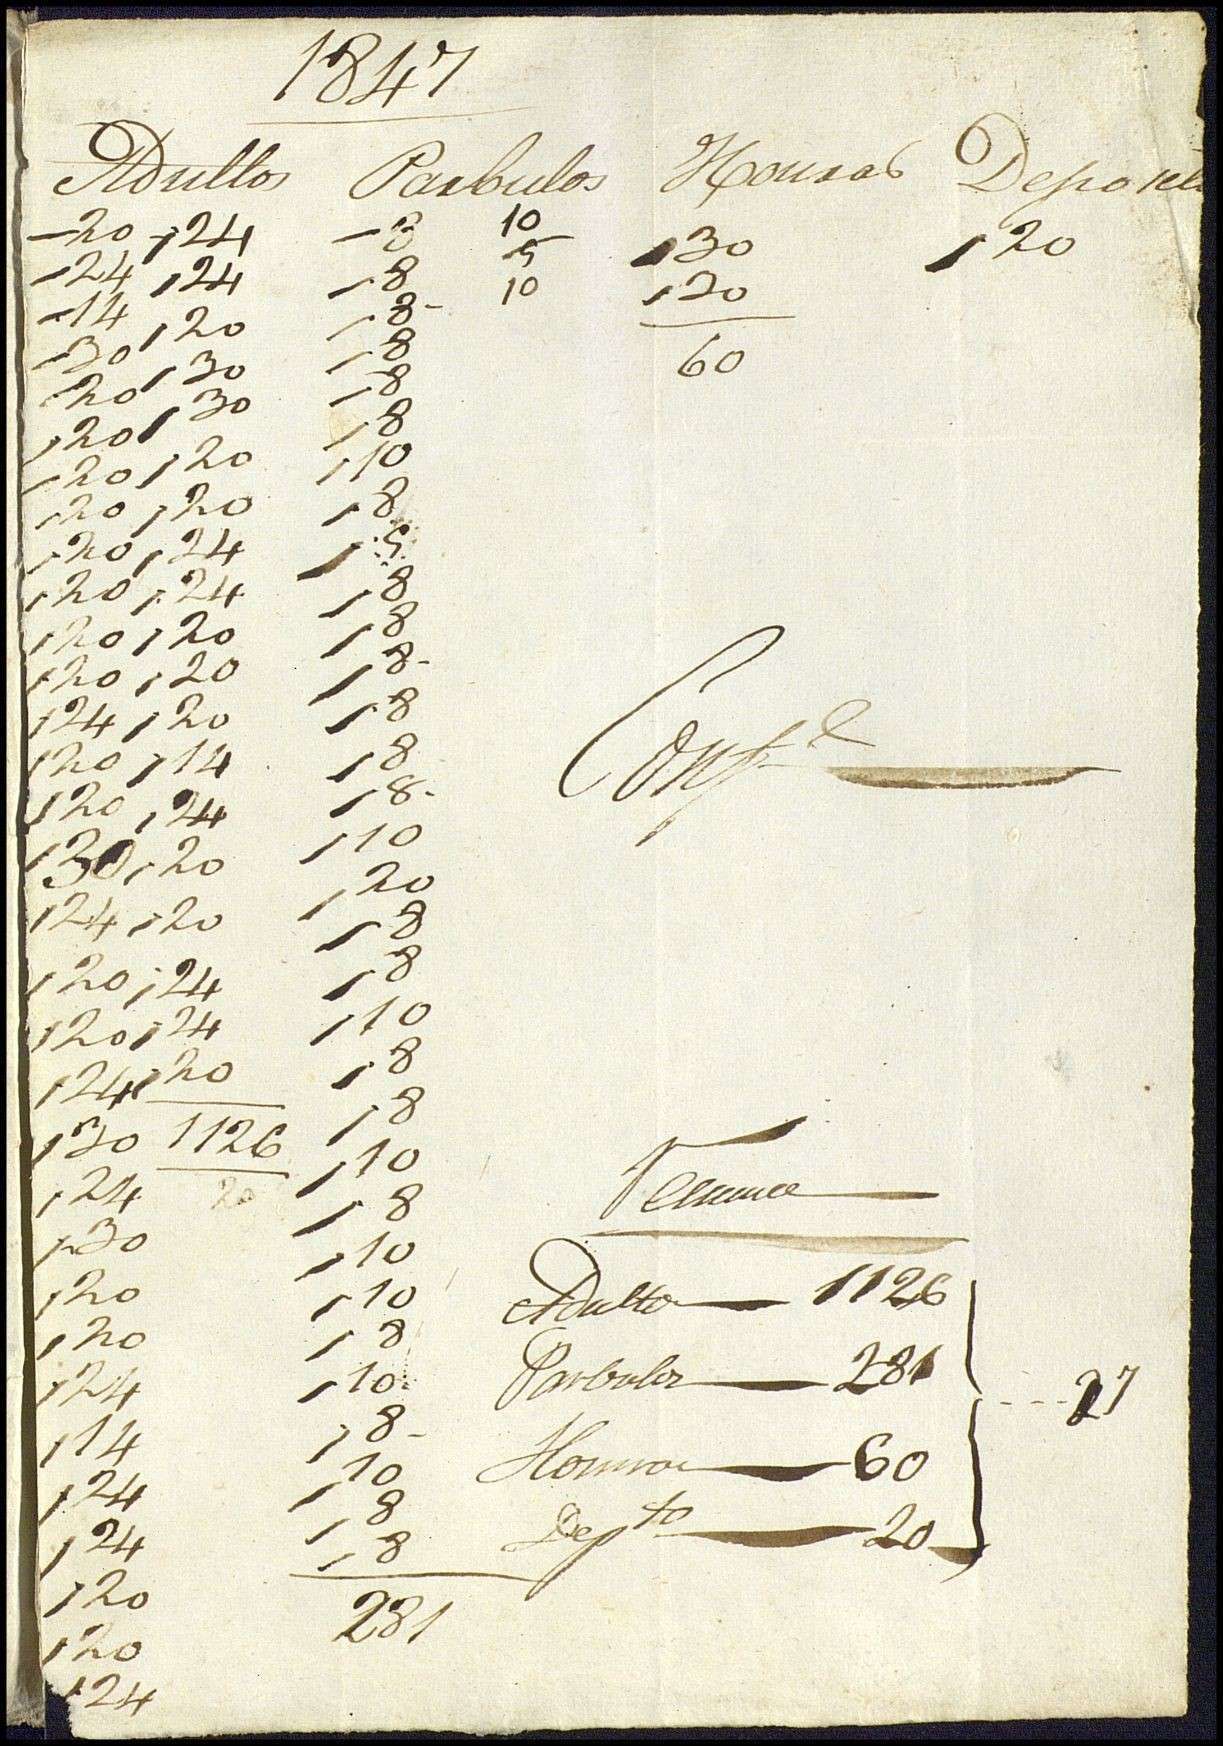 1847
Adultos Parbulos Honras Deposito
20 24 8 10 30 20
24 24 8 5 30
14 20 8 10 60
30 30 8
20 30 8
20 20 8
20 20 10
20 24 8
20 24 5
20 20 8
20 20 8
20 20 8
24 14 8
20 24 8
20 20 8
30 20 10
24 24 20
20 24 8
20 20 8
24 1126 10
30 20 8
24 8
30 10
20 8
20 10
24 10
14 8
24 10
24 8
20 10
20 8
24 8
281
Conf.e
Adultos 1126
Parbulos 281
27
Honras 60
Dep.to 20